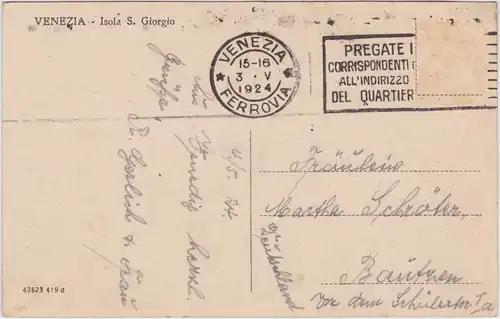 VENEZIA - Isola S. Giorgio
VENEZIA
15-16
3 · V
1924
FERROVIA
PREGATE I
CORRISPONDENTI
ALL'INDIRIZZO
DEL QUARTIER
4/5. 24.
Aus Venedig herzl.
Grüße
R. Gerlich & Frau
Fräulein
Martha Schröter,
Bautzen
Vor dem Schülertor 1a
Deutschland
43623 419 a